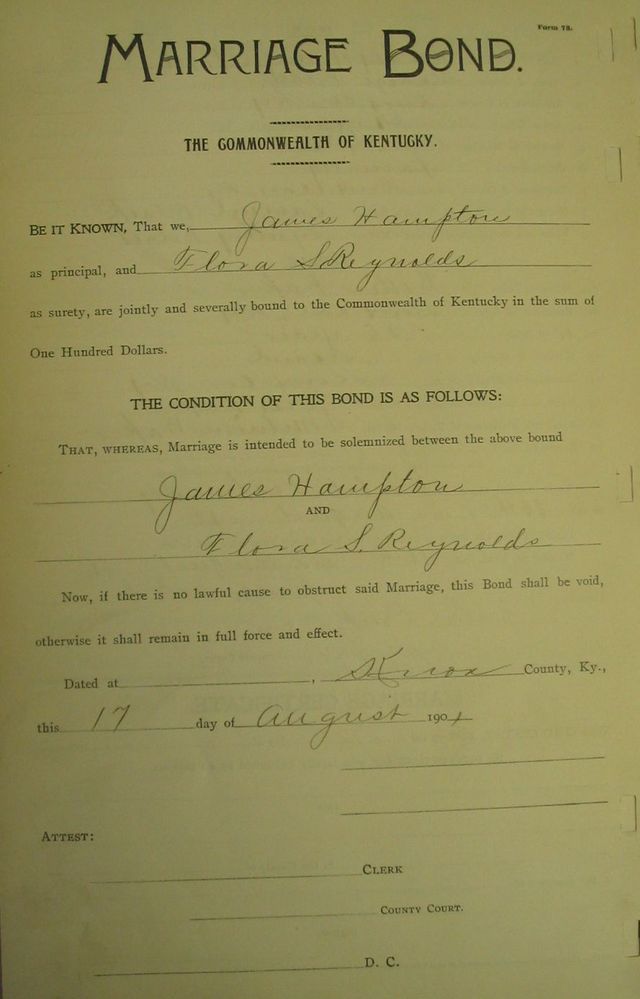 Form 73.
MARRIAGE BOND.
THE COMMONWEALTH OF KENTUCKY.
BE IT KNOWN, That we, James Hampton
as principal, and Flora S Reynolds
as surety, are jointly and severally bound to the Commonwealth of Kentucky in the sum of
One Hundred Dollars.
THE CONDITION OF THIS BOND IS AS FOLLOWS:
THAT, WHEREAS, Marriage is intended to be solemnized between the above bound
James Hampton
AND
Flora S. Reynolds
Now, if there is no lawful cause to obstruct said Marriage, this Bond shall be void,
otherwise it shall remain in full force and effect.
Dated at , Knox County, Ky.,
this 17 day of August 190
ATTEST:
CLERK
COUNTY COURT.
D. C.